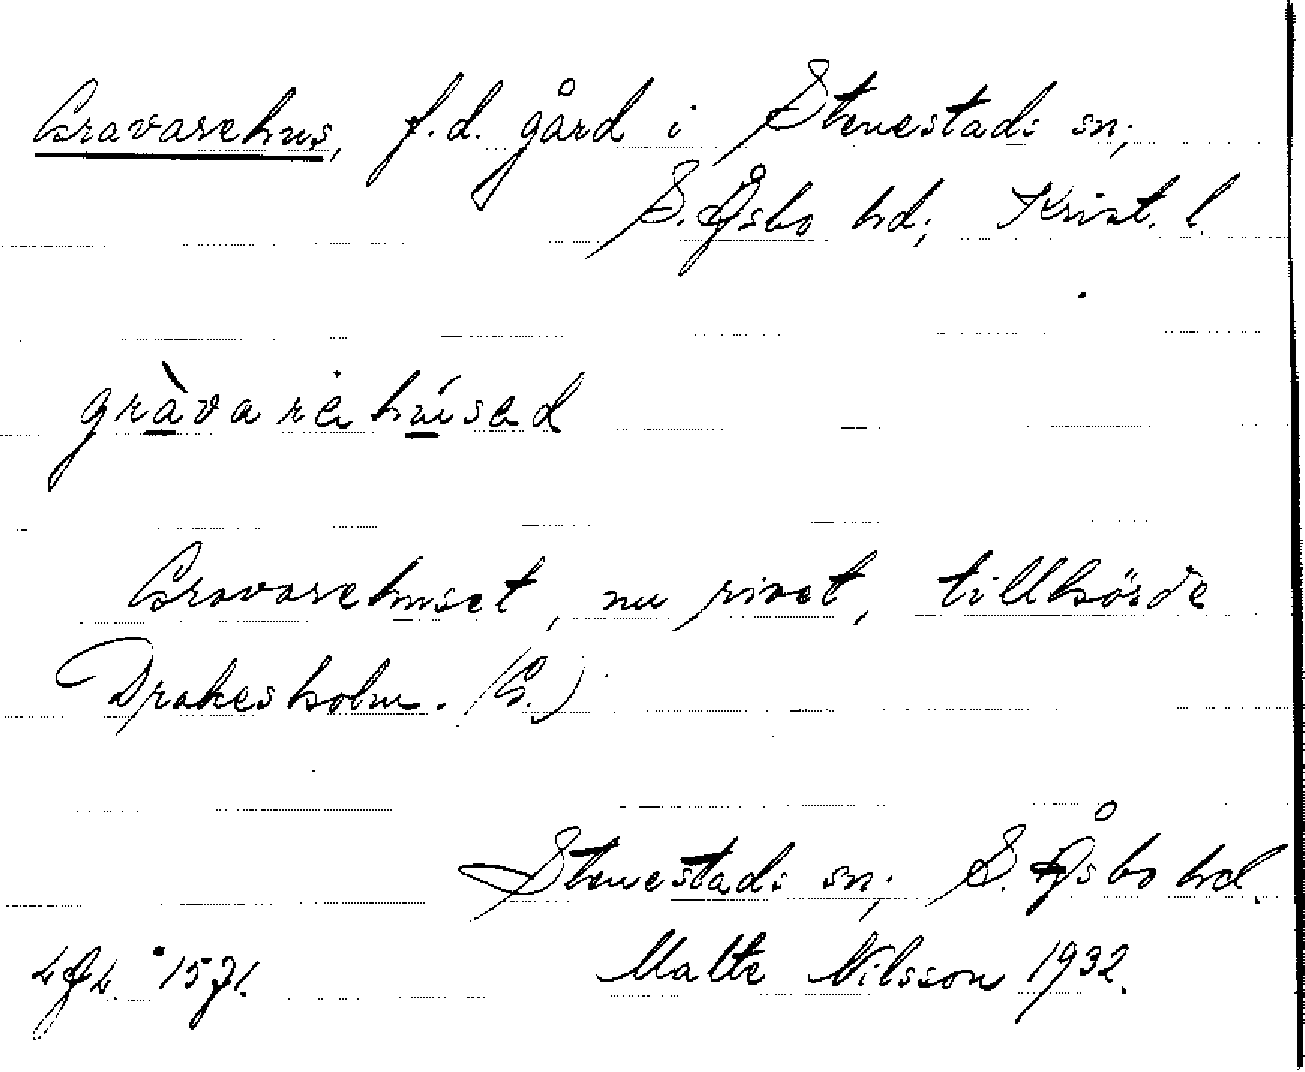 Gravarehus, f.d. gård i Stenestads sn;
S. Åsbo hd; Krist. l.
gràvarehúsed
Gravarehuset, nu rivet, tillhörde
Drakesholm. (G.)
Stenestads sn; S. Åsbo hd.
1571. Malte Nilsson 1932.